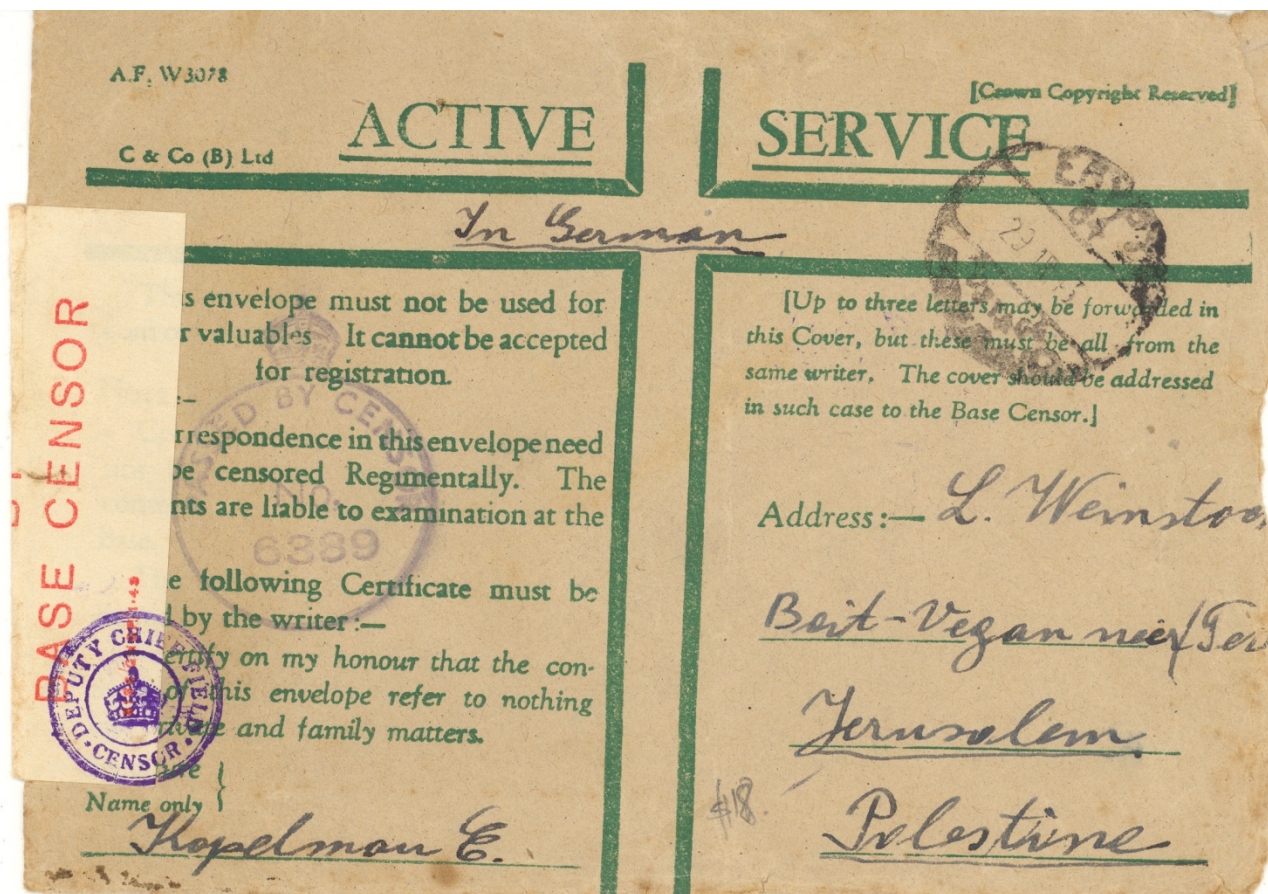 A.F. W3078
[Crown Copyright Reserved]
ACTIVE SERVICE
C & Co (B) Ltd
In German
s envelope must not be used for
or valuables It cannot be accepted
for registration.
:—
rrespondence in this envelope need
be censored Regimentally. The
nts are liable to examination at the
e following Certificate must be
by the writer:—
ertify on my honour that the con-
of this envelope refer to nothing
rivate and family matters.
Name only }
Kopelman E.
BASE CENSOR
DEPUTY CHIEF FIELD
CENSOR
PASSED BY CENSOR
No.
6389
[Up to three letters may be forwarded in
this Cover, but these must be all from the
same writer. The cover should be addressed
in such case to the Base Censor.]
Address:— L. Weinstoc
Beit-Vegan
Jerusalem
Palestine
$18.